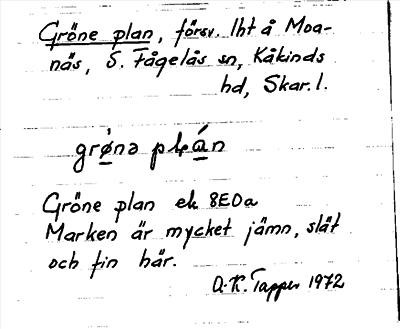 Gröne plan, försv. lht å Moa-
näs, S. Fågelås sn, Kåkinds
hd, Skar. l.
grø̀nə plán
Gröne plan ek 8E0a
Marken är mycket jämn, slät
och fin här.
A.R. Tapper 1972